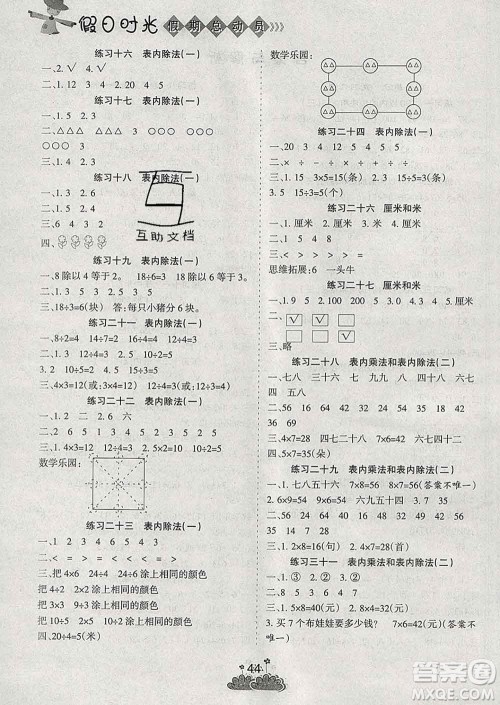 假日时光 假期总动员
练习十六 表内除法(一)
一、2.√ √
二、1.3 12 4 3 2.5 4 5 20
练习十七 表内除法(一)
一、1.5 2.3
二、△△△ △△△ △△△ ○○○ ○○○
○○○ ○○○
三、1.24 6 4 2.3
练习十八 表内除法(一)
一、1.3 2.6
二、1.3 4 5
三、6 4 3 7
四、
互助文档
练习十九 表内除法(一)
一、1.8 除以 4 等于 2。 18÷6=3
2.18 除以 3 等于 6。
三、18÷3=6(块) 答:每只小猪分 6 块。
练习二十一 表内除法(一)
一、1.8÷4=2 2.10÷2=5 3.12÷4=3
二、1.6÷2=3 8÷2=4 18÷6=3
2.10÷5=2 20÷4=5 15÷3=5
三、4×3=12(或:3×4=12) 12÷4=3
练习二十二 表内除法(一)
一、1.2 二 2.六 六
二、1.3 2.4
三、1.4×3=12(或3×4=12) 2.5×2=10
数学乐园:
练习二十三 表内除法(一)
一、3 4 2 3 5
二、< > > > < =
三、把 4×6 24÷6 涂上相同的颜色
把 2×4 24÷4 涂上相同的颜色
把 3×3 9÷3 涂上相同的颜色
把 10÷5 10÷2 涂上相同的颜色
四、20÷4=5(米)
数学乐园:
练习二十四 表内除法(一)
一、20 3 5 12 4 9 4 15
二、× ÷ ÷ ÷ - ÷
三、1.5 3×5=15(条) 2.3 15÷5=3(条)
3.5 15÷3=5(个)
练习二十六 厘米和米
一、1.厘米 2.厘米 3.厘米 4.厘米
二、1.3 2.7 3.4 4.2
三、< = > > < =
思维拓展:6 一头牛
练习二十七 厘米和米
一、1.9 5 2.100 200 3.5 4.2 5.9
二、√ √
√
三、略
练习二十八 表内乘法和表内除法(二)
一、七八 三七 七六 九 七 八 六
四 五
二、56 16 64 18 14 18 56 42 28
36 64 49
三、4×7=28 四七二十八 7×6=42 六七
四十二 5×7=35 五七三十五
练习二十九 表内乘法和表内除法(二)
一、1.七八五十六 7×8=56(答案不唯一)
2.6×9=54 9×6=54 六九五十四
二、56 15 42 64 42 54 56 48
30 72 81 24
三、1.2×8=16(句) 2.4×8=32(句)
练习三十一 表内乘法和表内除法(二)
一、1.③ 2.② 3.②
二、1.4×8=32(元) 2.7×5=35(元)
3.买 7 个布娃娃要多少钱? 7×6=42(元)(答案不
唯一)
44
答案圈
MXQE.COM